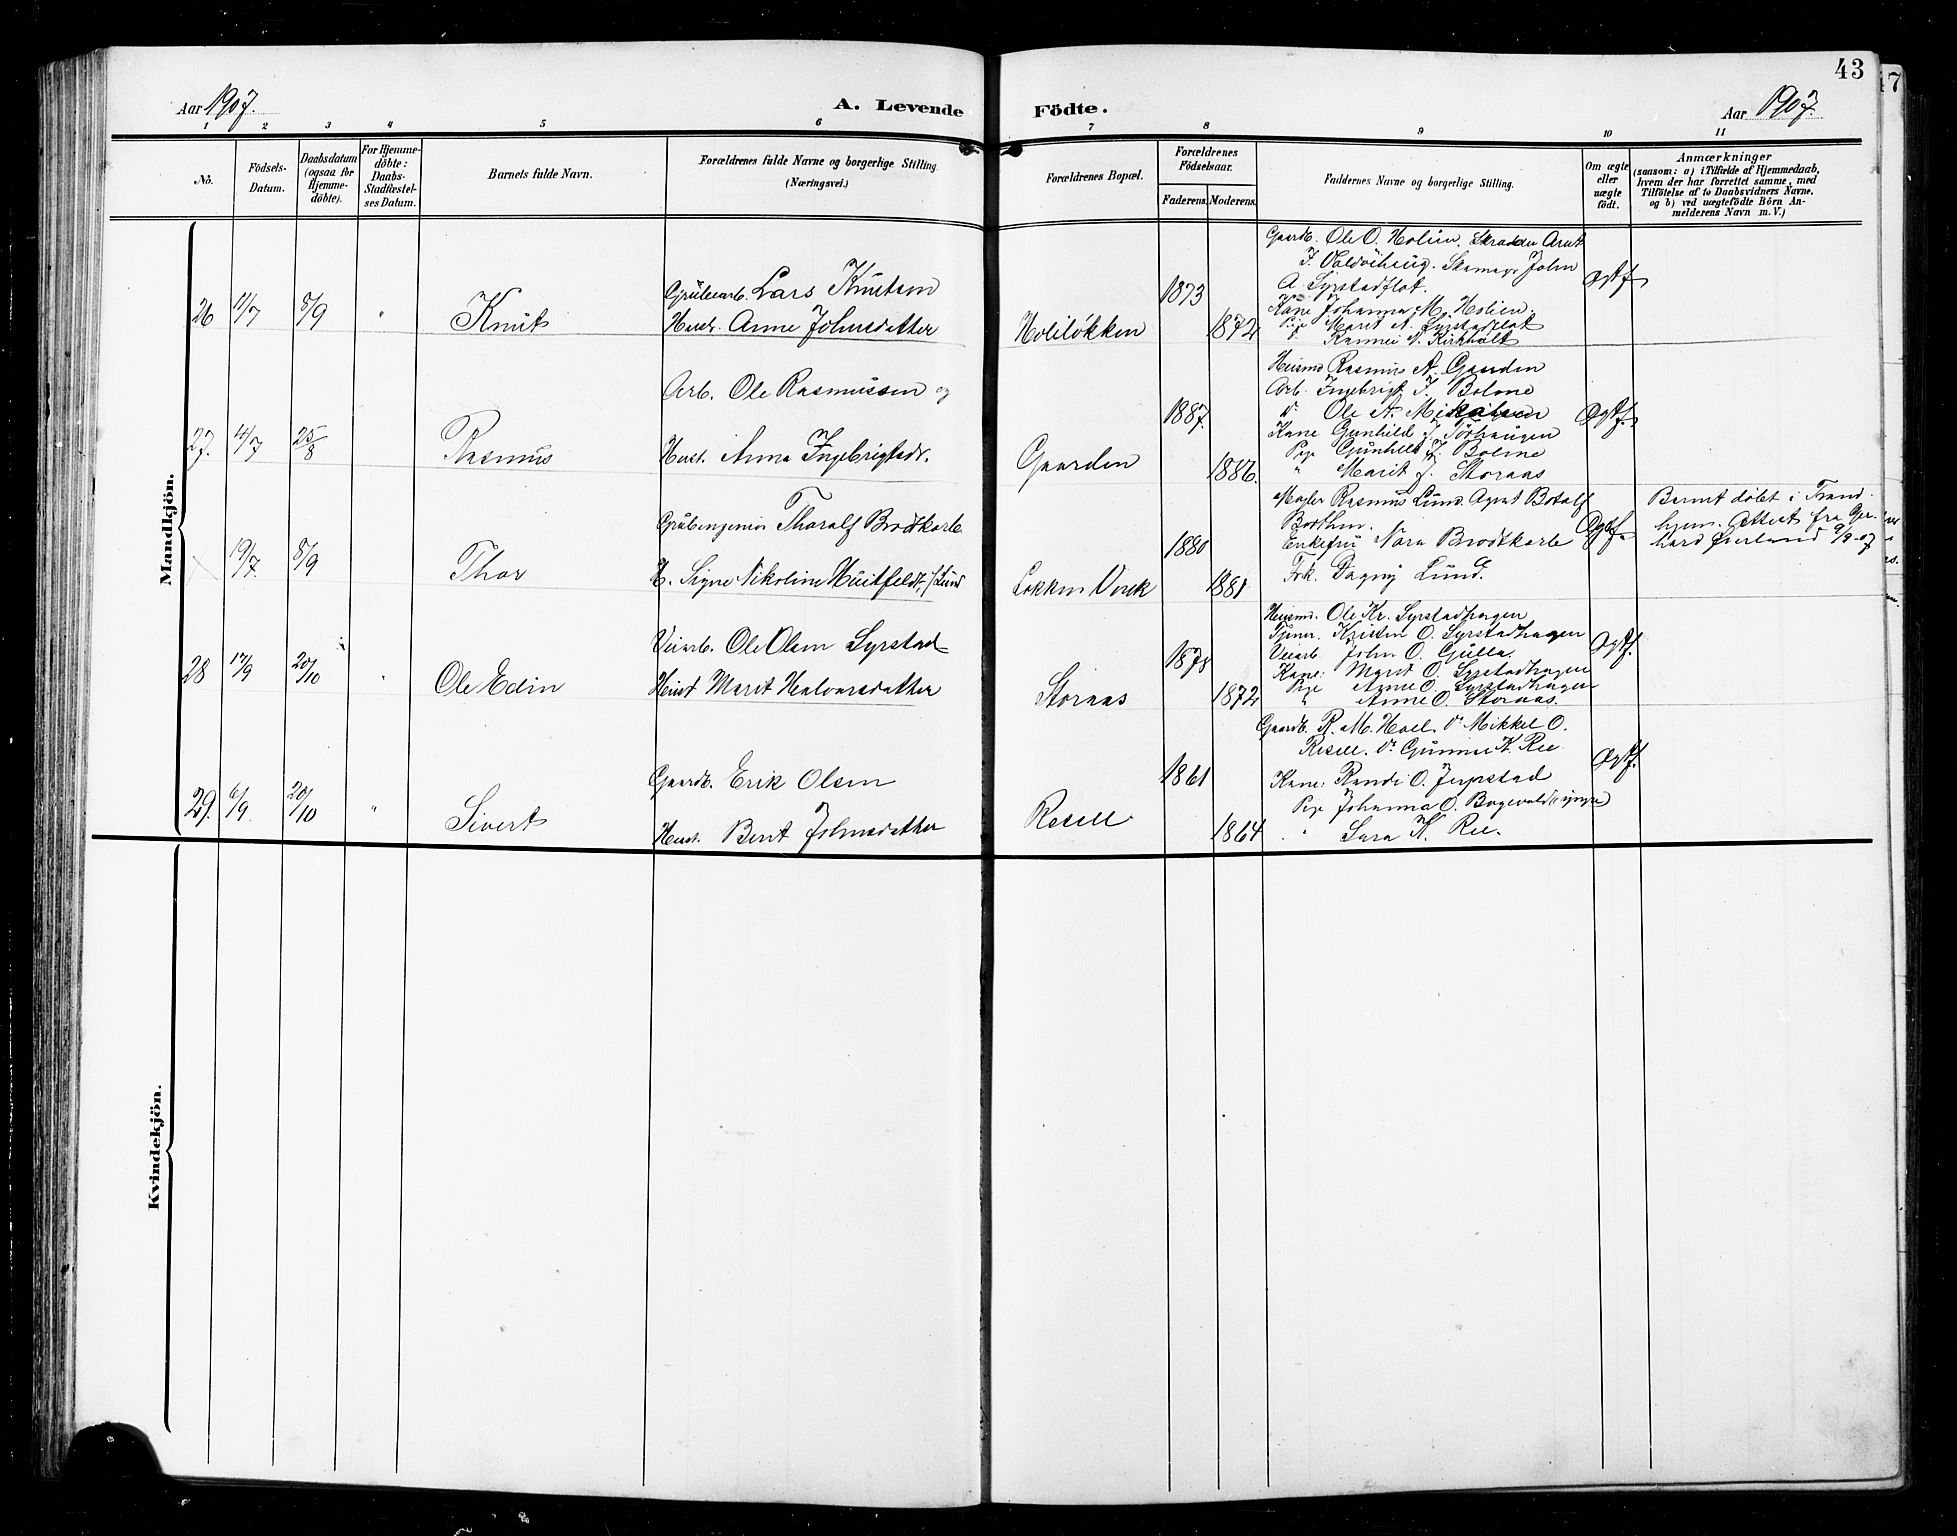 43
47
Aar 1907.
A. Levende
Födte.
Aar 1907.
1 2 3 4 5 6 7 8 9 10 11
No.
Födsels-
Datum.
Daabsdatum
(ogsaa for
Hjemme-
döbte).
For Hjemme-
döbte:
Daabs-
Stadfæstel-
ses Datum.
Barnets fulde Navn.
Forældrenes fulde Navne og borgerlige Stilling
(Næringsvei.)
Forældrenes Bopæl.
Forældrenes
Födselsaar.
Faderens. Moderens.
Faddernes Navne og borgerlige Stilling.
Om ægte
eller
uægte
født.
Anmærkninger
(saasom: a) i Tilfælde af Hjemmedaab,
hvem der har forrettet samme, med
Tilföielse af to Daabsvidners Navne,
og b) ved uægtefödte Börn An-
melderens Navn m. V.)
Mandkjön.
26 11/7 8/9 " Knut
Grubearb. Lars Knutsen
Hustr. Anne Johnsdatter
Holiløkken
1873
1872
Gaardb. Ole O. Holien. Skrædder Arnt
John
A. Syrstadflot.
Kone Johanna M. Holien.
Pige Marit A. Syrstadflot
Kirkholt
Ægtf.
27. 14/7 25/8 Rasmus
Arb. Ole Rasmussen og
Hust. Anna Ingebrigtsdr.
Gaarden
1887.
1886.
Husmd Rasmus A. Gaarden
Arb. Ingebrigt J. Bolme
do Ole A.
Kone Gunhild J.
Pige Gunhild J. Bolme
" Marit J. Storaas
Ægtf.
19/7 8/9 Thor
Grubeingeniør Thoralf Brodtkorb
H. Signe Nikoline Huitfeldt, f. Lund
Løkken Verk
1880
1881
Mægler Rasmus Lund. Agent Botolf
Enkefru Nora Brodtkorb
Frk. Dagny Lund.
Ægtf.
Barnet døbt i Trond-
hjem. Attest fra Ger-
hard Øverland 9/9-07
28 17/9 20/10 " Ole Edin
Veiarb. Ole Olsen Syrstad
Hust Marit Halvorsdatter
Storaas
1878
1872
Husmd. Ole Kr. Syrstadhagen
Tjener. Kristen O. Syrstadhagen
Veiarb. John O. Gulla.
Kone: Marit O. Syrstadhagen
Pige Anne O. Syrstadhagen
" Anne O. Storaas.
Ægtf.
29. 6/9 20/10 " Sivert
Gaardb. Erik Olsen
Hust. Berit Johnsdatter
Resell
1861
1864.
Gaardb. R. M. Hoel. do Mikkel O.
Resell. do Gunnar K. Ree.
Kone: Randi O. Jerpstad
Pige Johanna O.
" Sara K. Ree.
Ægtf.
Kvindekjön.